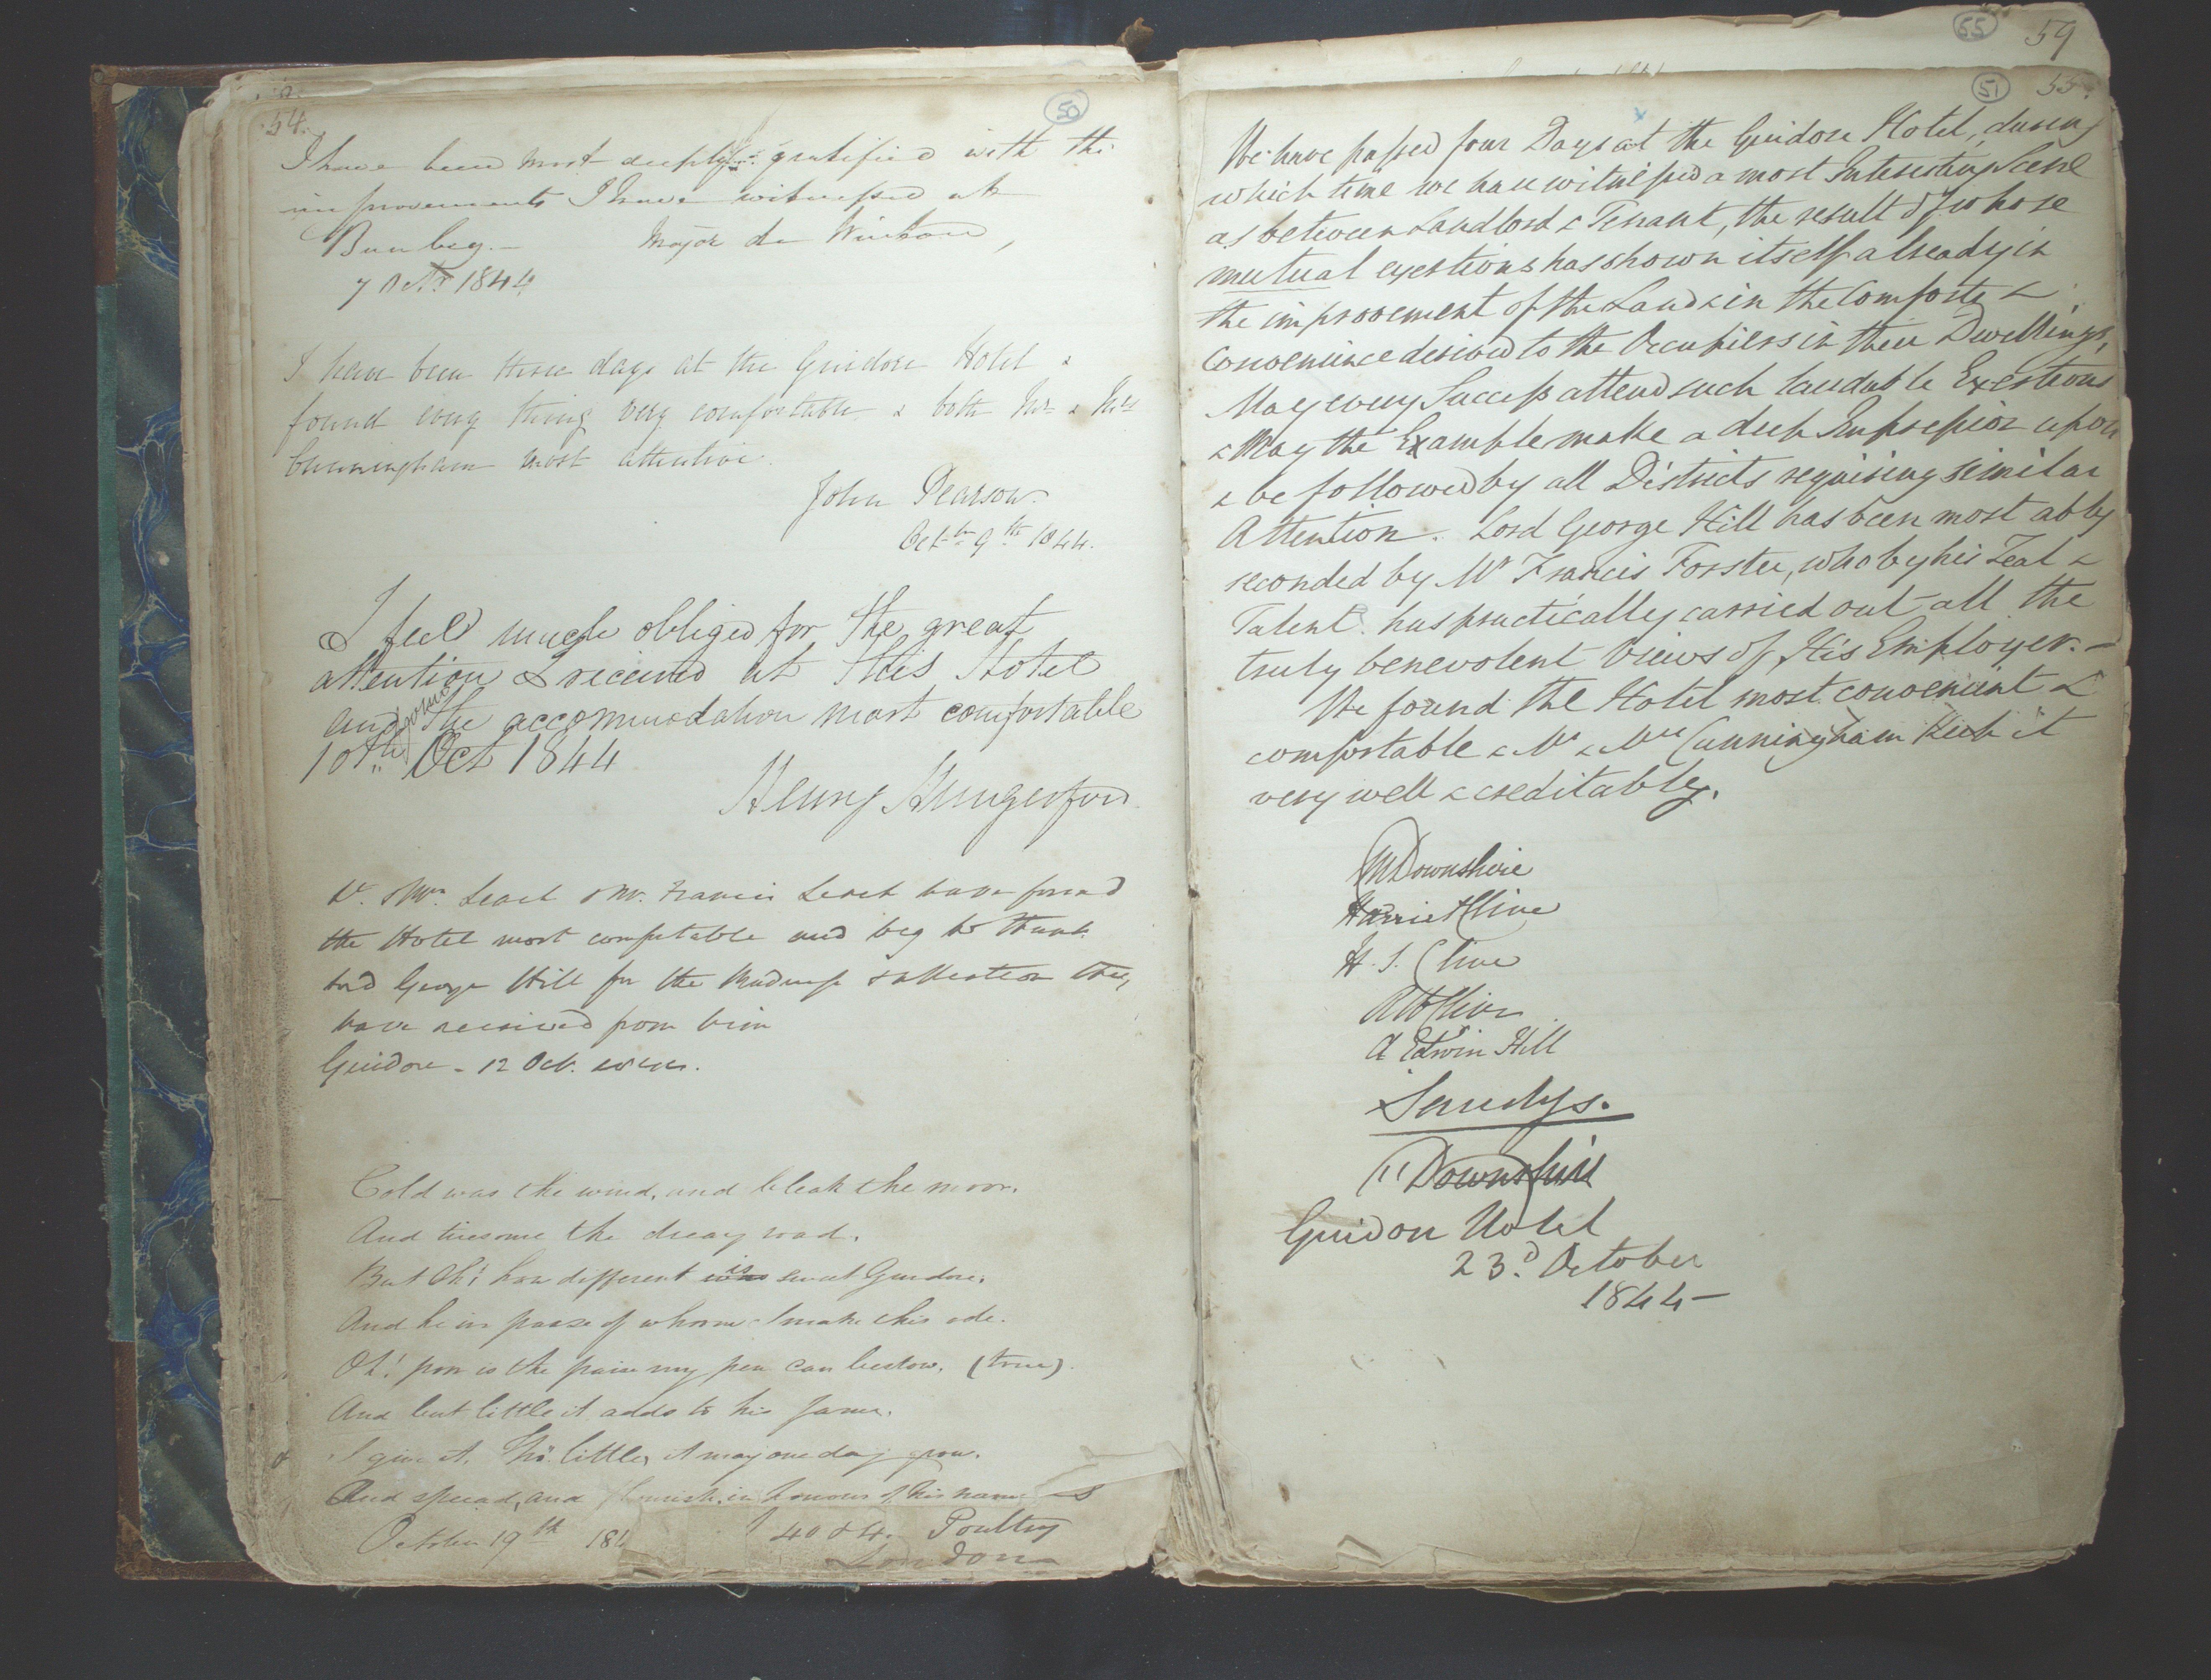 54.
50
I have been most deeply gratified with the
improvements I have witnessed at
Bunbeg. — Major de Winton,
7 Octr 1844
I have been three days at the Guidore Hotel &
found every thing very comfortable & both Mr & Mrs
Cunningham most attentive.
John Pearson
Octbr 9th 1844.
I feel much obliged for the great
attention I received at this Hotel
and the accommodation most comfortable
10th Oct 1844
Henry Hungerford
& Mrs. & Mr. Francis have found
the Hotel most comfortable and beg to thank
Lord George Hill for the kindness & attention they
have received from him
Guidore - 12 Oct.
Cold was the wind, and bleak the moor.
And tiresome the dreary road.
But Oh! how different was is sweet Guidore.
And he in praise of whom I make this ode.
Oh! poor is the praise my pen can bestow. (true).
And but little it adds to his fame.
I give it. Tho' little, it may one day grow.
And spread, and flourish, in honour of his name
October 19th 184
40 & 4 Poultry
London
55 59
51 55.
We have passed four Days at the Guidore Hotel, during
which time we have witnessed a most Interesting Scene
as between Landlord & Tenant, the result of whose
mutual exertions has shown itself already in
the improvement of the Land & in the Comforts &
Convenience derived to the Occupiers in their Dwellings,
May every Success attend such laudable Exertions
& May the Example make a deep Impression upon
& be followed by all Districts requiring similar
Attention. Lord George Hill has been most ably
seconded by Mr Francis Forster, who by his Zeal &
Talent has practically carried out all the
truly benevolent Views of His Employer. —
We found the Hotel most convenient &
comfortable & Mr & Mrs Cunningham Keep it
very well & creditably.
M Downshire
Harriet Clive
H. S. Clive
Clive
A Edwin Hill
Sandys.
Downshire
Guidore Hotel
23d. October
1844 —